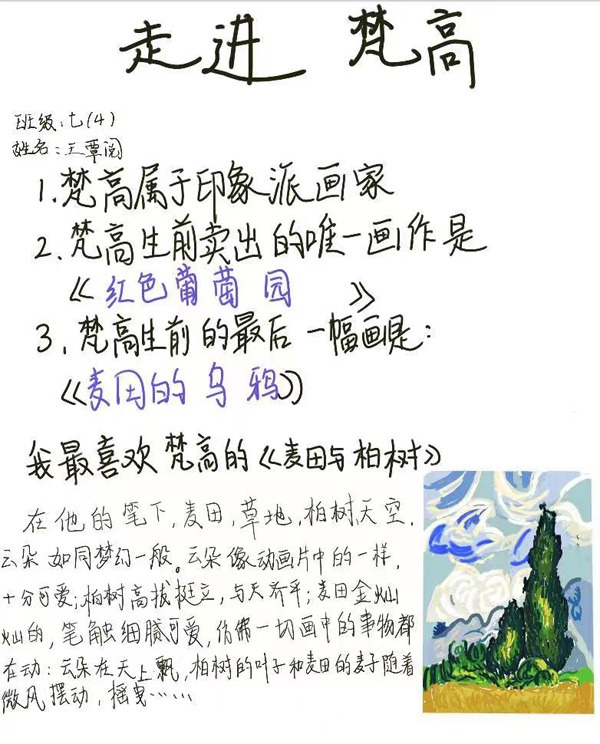 走进 梵高
班级:七(4)
姓名:王覃阅
1.梵高属于印象派画家
2.梵高生前卖出的唯一画作是
《红色葡萄园 》
3.梵高生前的最后一幅画是:
《麦田的乌鸦》
我最喜欢梵高的《麦田与柏树》
在他的笔下,麦田,草地,柏树,天空,
云朵如同梦幻一般。云朵像动画片中的一样,
十分可爱;柏树高拔挺立,与天齐平;麦田金灿
灿的,笔触细腻可爱,仿佛一切画中的事物都
在动:云朵在天上飘,柏树的叶子和麦田的麦子随着
微风摆动,摇曳……